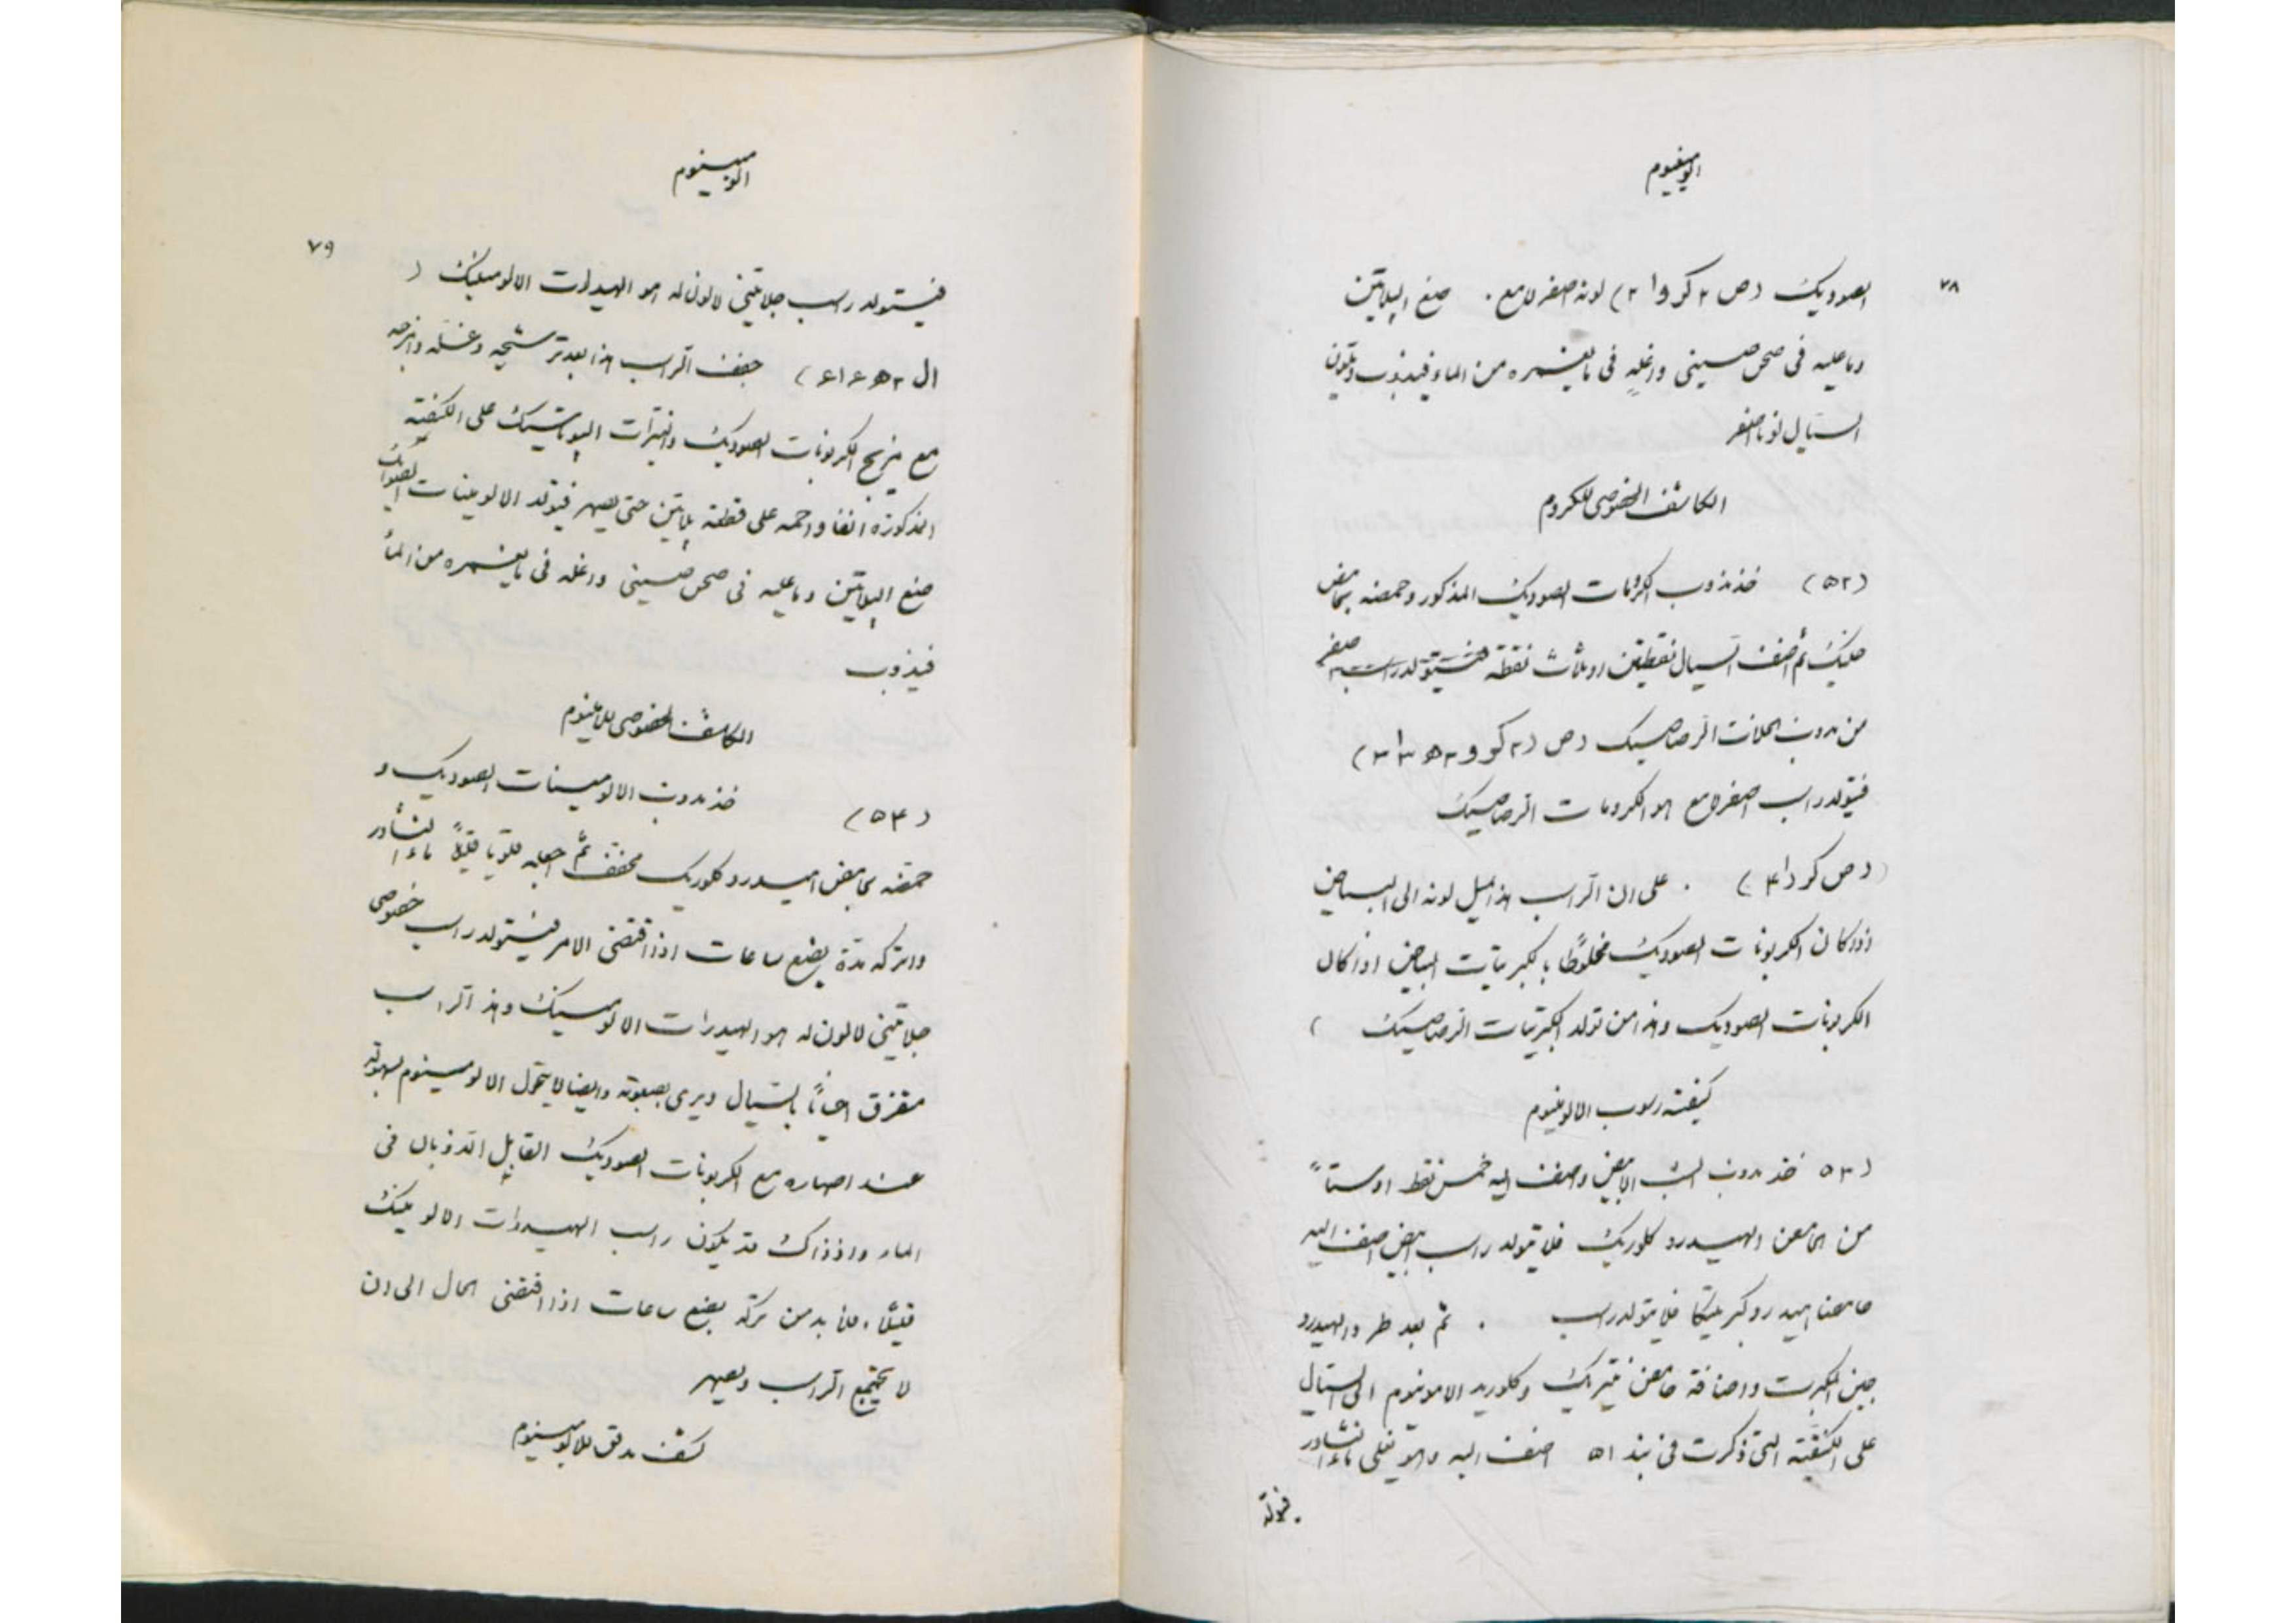 الومينيوم
٧٨
الصوديك (ص ٢ كر و ا ٢) لونه اصفر لامع . ضع البلاتين
وما عليه فى صحن صينى واغله فى ما يغمره من الماء فيذوب ويتلون
السيال لونا اصفر
الكاشف الخصوصى للكروم
(٥٢) خذ مذوب الكرومات الصوديك المذكور وحمضه بحامض
خليك ثم اضف السيال نقطتين او ثلاث نقطة فيتولد راسب اصفر
من مذوب الخلات الرصاصيك
فيتولد راسب اصفر لامع هو الكرومات الرصاصيك
(ص كر ا ٤) . على ان الراسب هذا يميل لونه الى البياض
اذا كان الكربونات الصوديك مخلوطا بالكبريتات البياض اذا كان
الكربونات الصوديك وهذا من تولد الكبريتات الرصاصيك )
كيفية رسوب الالومينيوم
(٥٣ خذ مذوب الشب الابيض وضف اليه خمس نقط او ستاً
من الحامض الهيدروكلوريك فلا يتولد راسب ابيض اضف اليه
حامضا هيدروكبريتيكا فلا يتولد راسب . ثم بعد طرد الهيدرو
جين الكبريت واضافة حامض نيتريك وكلوريد الامونيوم الى السيال
على الكيفية التى ذكرت فى بند ٥١ اضف اليه وهو يغلى ماء النشادر
فيتولد
الومينيوم
٧٩
فيتولد راسب جلاتينى لا لون له هو الهيدرات الالومينيك (
ال ٢ ه ٦ ا ٦) جفف الراسب هذا بعد ترشيحه وغسله وامزجه
مع مزيج الكربونات الصوديك والنيترات البوتاسيك على الكيفية
المذكورة انفا واحمه على قطعة بلاتين حتى يصهر فيتولد الالومينات الصوديك
ضع البلاتين وما عليه فى صحن صينى واغله فى ما يغمره من الماء
فيذوب
الكاشف الخصوصى للالومينيوم
(٥٤) خذ مذوب الالومينات الصوديك و
حمضه بحامض هيدروكلوريك مخفف ثم اجعله قلويا قليلاً بماء النشادر
واتركه مدة بضع ساعات اذا اقتضى الامر فيتولد راسب خصوصى
جلاتينى لا لون له هو الهيدرات الالومينيك وهذا الراسب
متفرق احياناً بالسيال ويرى بصعوبة وايضا لا يتحول الالومينيوم بسهولة
عند اصهاره مع الكربونات الصوديك القابل الذوبان فى
الماء واذ ذاك قد يكون راسب الهيدرات الالومينيك
قليلاً . فلا بد من تركه بضع ساعات اذا اقتضى الحال الى ان
لا يجتمع الراسب ويصهر
كشف مدقق للالومينيوم